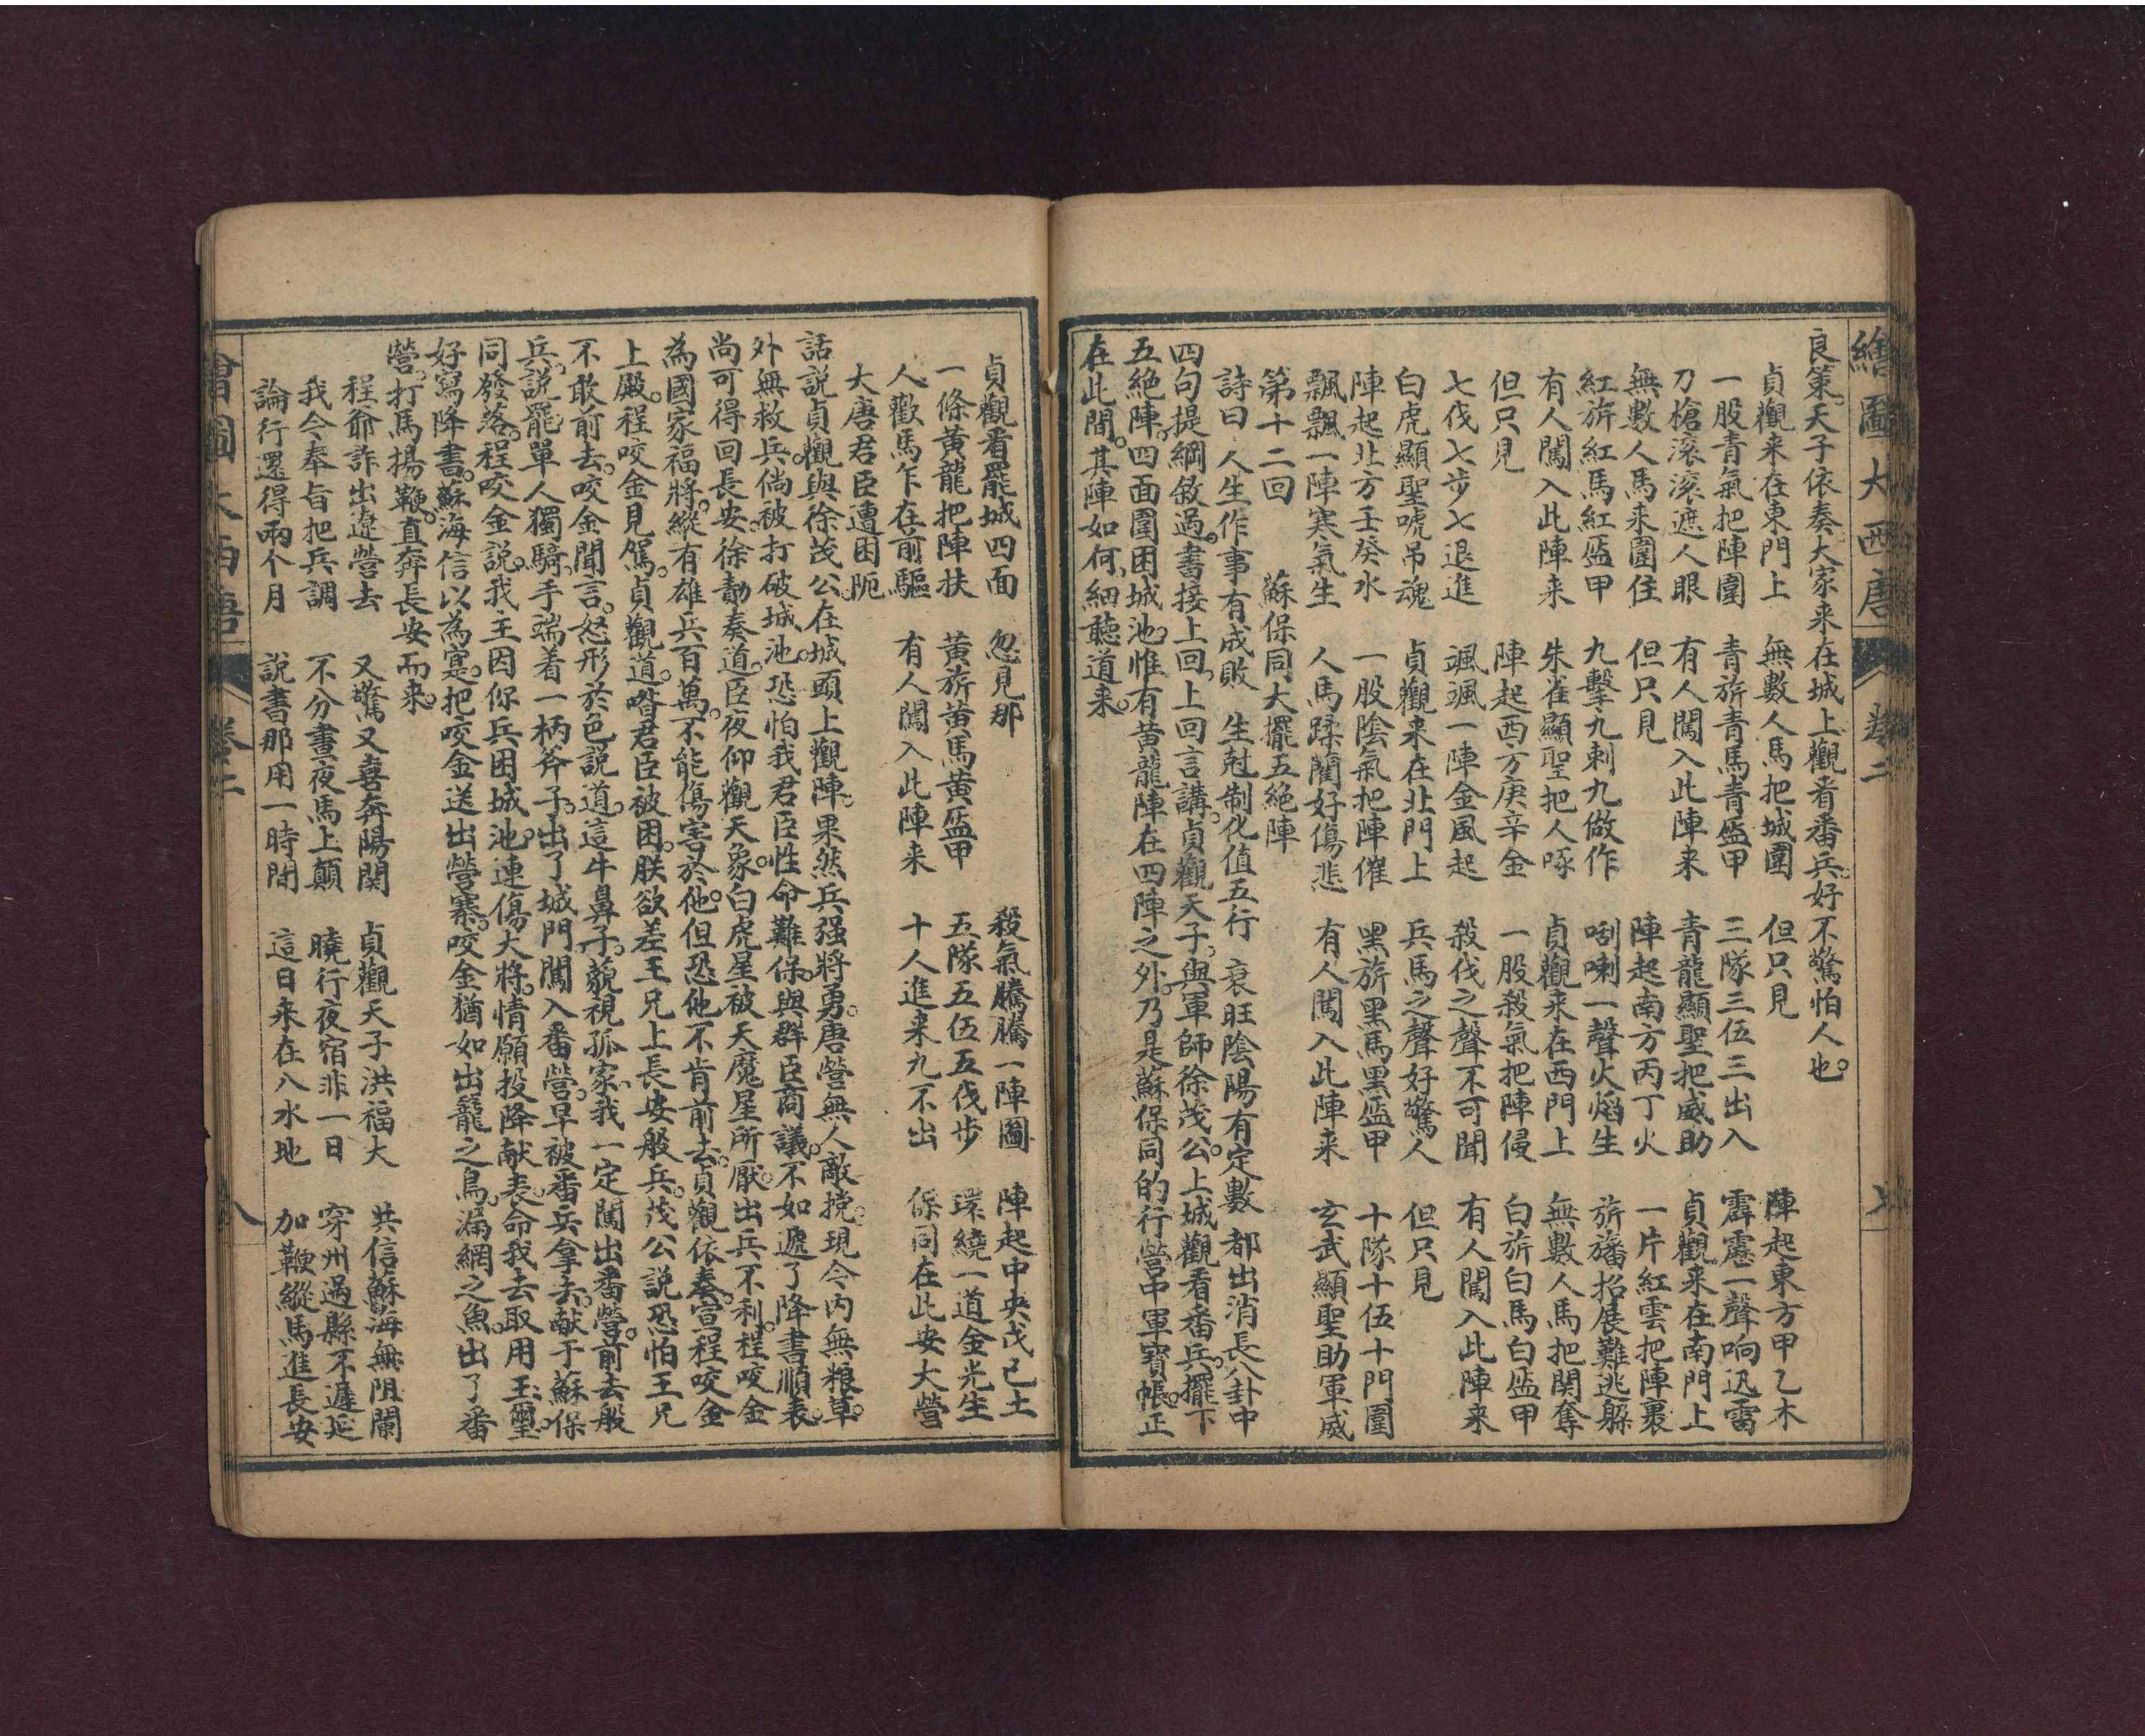 繪圖大西唐 卷二 七
良策。天子依奏大家来在城上觀看番兵。好不驚怕人也。
貞觀来在東門上 無數人馬把城圍 但只見 陣起東方甲乙木
一股青氣把陣圍 青旂青馬青盔甲 三隊三伍三出入 霹靂一聲响迅雷
刀槍滚滚遮人眼 有人闖入此陣来 青龍顯聖把威助 貞觀来在南門上
無數人馬来圍住 但只見 陣起南方丙丁火 一片紅雲把陣裹
紅旂紅馬紅盔甲 九擊九刺九做作 咧喇一聲火焰生 旂旛招展難逃躲
有人闖入此陣来 朱雀顯聖把人啄 貞觀来在西門上 無數人馬把関奪
但只見 陣起西方庚辛金 一股殺氣把陣侵 白旂白馬白盔甲
七伐七步七退進 颯颯一陣金風起 殺伐之聲不可聞 有人闖入此陣来
白虎顯聖唬吊魂 貞觀来在北門上 兵馬之聲好驚人 但只見
陣起北方壬癸水 一股陰氣把陣催 黑旂黑馬黑盔甲 十隊十伍十門圍
飄飄飄一陣寒氣生 人馬蹂躪好傷悲 有人闖入此陣来 玄武顯聖助軍威
第十二回 蘇保同大擺五絶陣
詩曰 人生作事有成敗 生尅制化值五行 衰旺陰陽有定數 都出消長八卦中
四句提綱敘過。書接上回。上回言講。貞觀天子。與軍師徐茂公。上城觀看番兵。擺下
五絶陣。四面圍困城池。惟有黃龍陣在四陣之外。乃是蘇保同的行營中軍寶帳。正
在此間。其陣如何。細聽道来。
貞觀看罷城四面 忽見那 殺氣騰騰一陣圖 陣起中央戊己土
一條黃龍把陣扶 黃旂黃馬黃盔甲 五隊五伍五伐步 環繞一道金光生
人歡馬乍在前驅 有人闖入此陣来 十人進来九不出 保同在此安大營
大唐君臣遭困阨
話說貞觀與徐茂公。在城頭上觀陣。果然兵强將勇。唐營無人敵擋。現今内無粮草。
外無救兵。倘被打破城池。恐怕我君臣性命難保。與群臣商議。不如遞了降書順表。
尚可得回長安。徐勣奏道。臣夜仰觀天象。白虎星被天魔星所厭。出兵不利。程咬金
為國家福將。縱有雄兵百萬。不能傷害於他。但恐他不肯前去。貞觀依奏。宣程咬金
上殿。程咬金見駕。貞觀道。喒君臣被困。朕欲差王兄上長安般兵。茂公說恐怕王兄
不敢前去。咬金聞言。怒形於色說道。這牛鼻子。藐視孤家。我一定闖出番營。前去般
兵。說罷單人獨騎。手端着一柄斧子。出了城門闖入番營。早被番兵拿去。献于蘇保
同發落。程咬金說。我主因你兵困城池。連傷大將。情願投降献表。命我去取用玉璽。
好寫降書。蘇海信以為寔。把咬金送出營寨。咬金猶如出籠之鳥。漏網之魚。出了番
營。打馬揚鞭。直奔長安而来。
程爺詐出遼營去 又驚又喜奔陽関 貞觀天子洪福大 共信蘇海無阻闌
我今奉旨把兵調 不分晝夜馬上顛 曉行夜宿非一日 穿州過縣不遲延
論行還得兩个月 說書那用一時間 這日来在八水地 加鞭縱馬進長安
繪圖大西唐 卷二 八